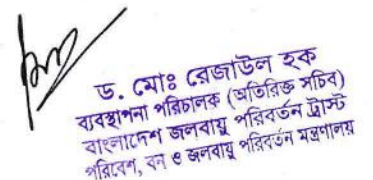 ড. মোঃ রেজাউল হক
ব্যবস্থাপনা পরিচালক (অতিরিক্ত সচিব)
বাংলাদেশ জলবায়ু পরিবর্তন ট্রাস্ট
পরিবেশ, বন ও জলবায়ু পরিবর্তন মন্ত্রণালয়